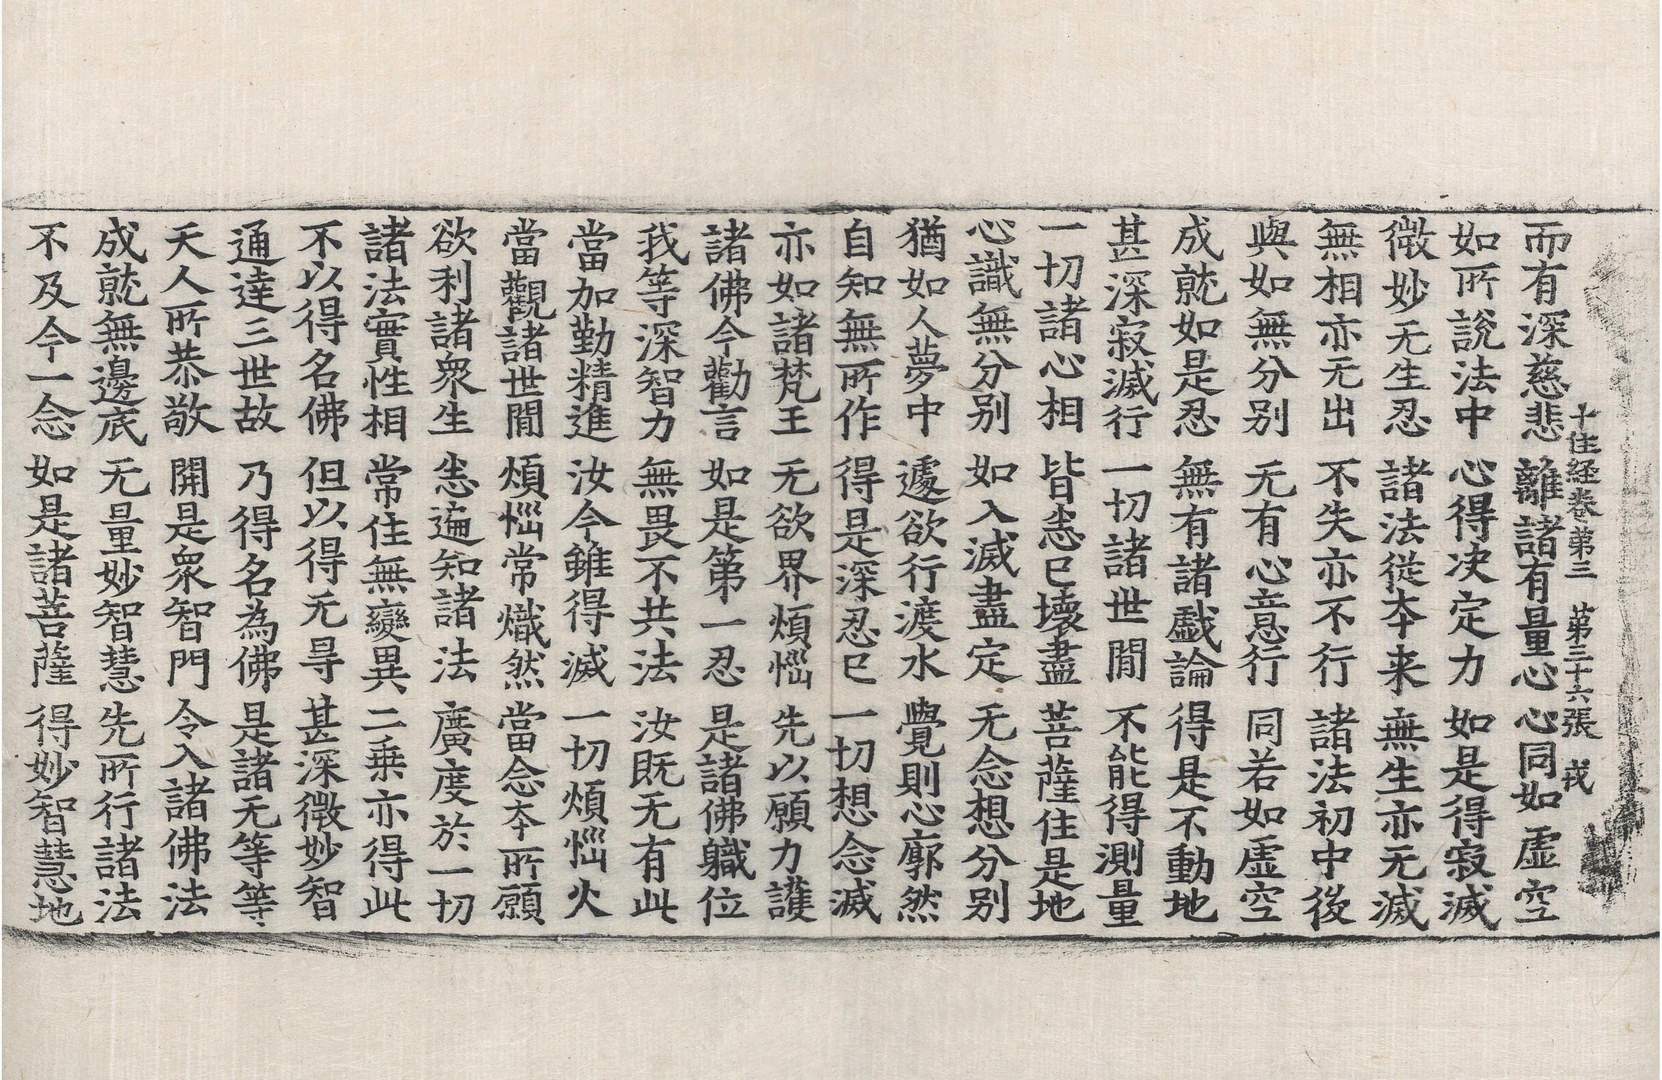 十住経卷第三 第三十六張 戎
而有深慈悲 離諸有量心 心同如虛空
如所說法中 心得决定力 如是得寂滅
微妙无生忍 諸法從本来 無生亦无滅
無相亦无出 不失亦不行 諸法初中後
與如無分別 无有心意行 同若如虛空
成就如是忍 無有諸戱論 得是不動地
甚深寂滅行 一切諸世間 不能得測量
一切諸心相 皆悉已壞盡 菩薩住是地
心識無分別 如入滅盡定 无念想分別
猶如人夢中 遽欲行渡水 覺則心廓然
自知無所作 得是深忍已 一切想念滅
亦如諸梵王 无欲界煩惱 先以願力護
諸佛今勸言 如是第一忍 是諸佛軄位
我等深智力 無畏不共法 汝既无有此
當加勤精進 汝今雖得滅 一切煩惱火
當觀諸世間 煩惱常熾然 當念本所願
欲利諸衆生 悉遍知諸法 廣度於一切
諸法實性相 常住無變異 二乗亦得此
不以得名佛 但以得无㝵 甚深微妙智
通達三世故 乃得名為佛 是諸无等等
天人所恭敬 開是衆智門 令入諸佛法
成就無邊底 无量妙智慧 先所行諸法
不及今一念 如是諸菩薩 得妙智慧地